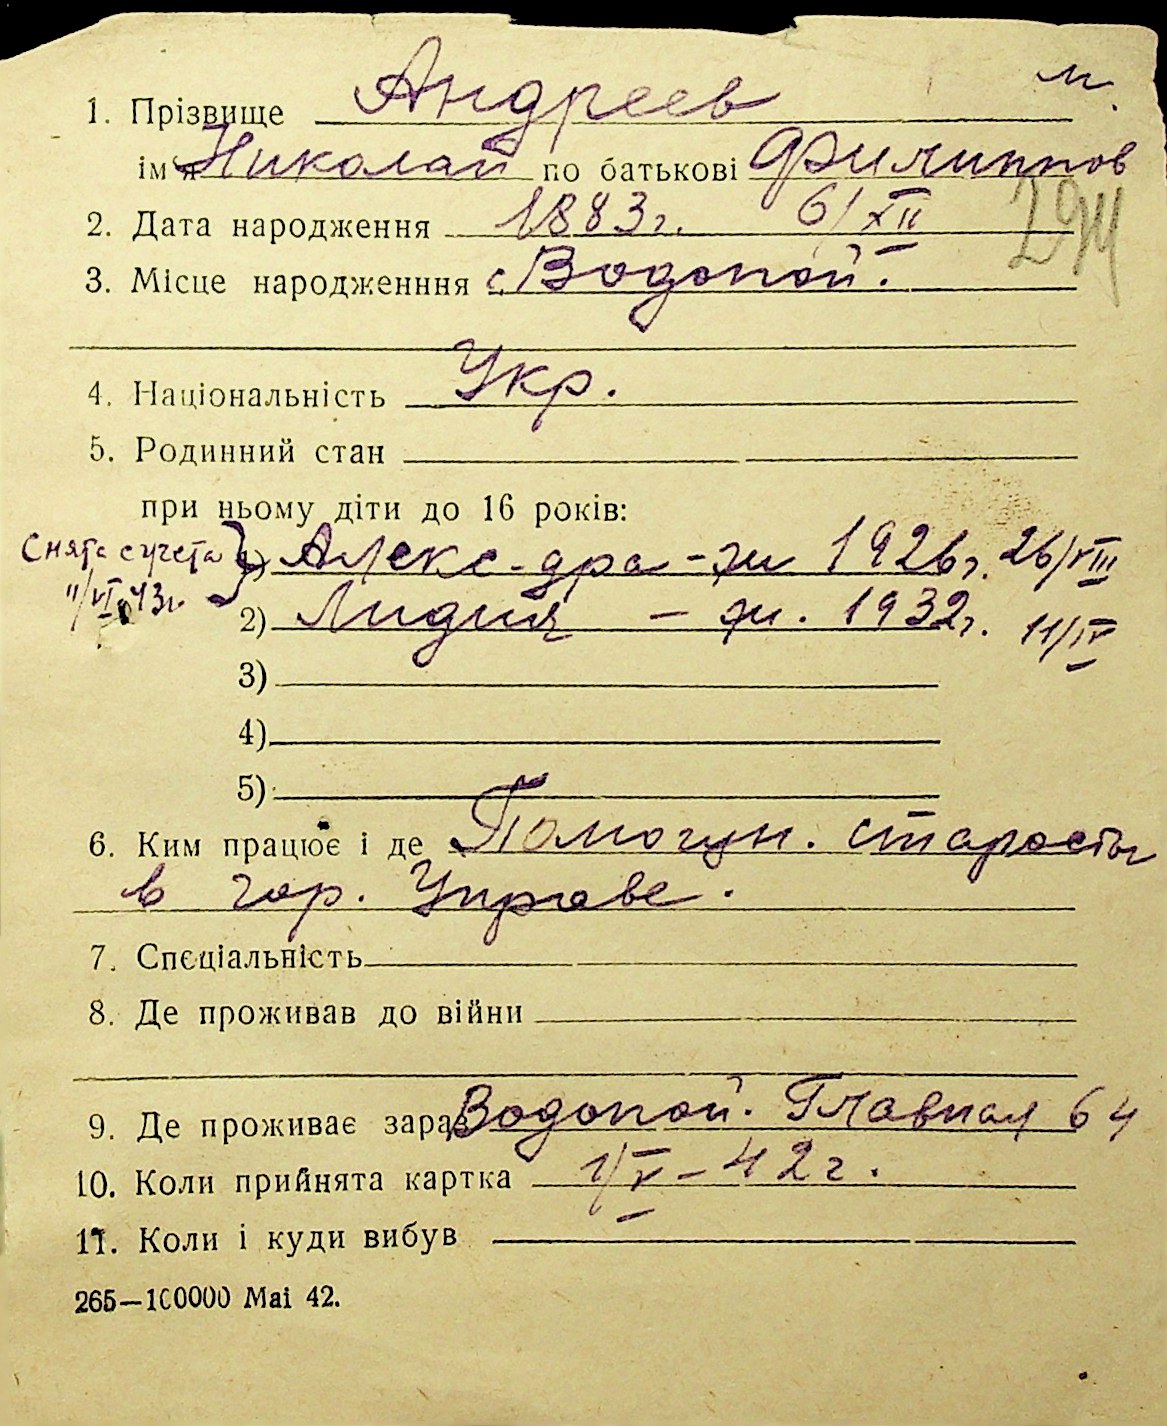 м.
1. Прізвище Андреев
ім'я Николай по батькові Филиппов
2. Дата народження 1883г. 6/XII
3. Місце народженння с. Водопой.
4. Національність Укр.
5. Родинний стан
при ньому діти до 16 років:
Снята с учета
11/VI 43г.
1) Алекс-дра - ж 1926г. 26/VIII
2) Лидия - ж. 1932г. 11/IV
3)
4)
5)
6. Ким працює і де Помощн. старосты
в гор. Управе.
7. Спєціальність
8. Де проживав до війни
9. Де проживає зараз Водопой. Главная 64
10. Коли прийнята картка 1/V-42г.
11. Коли і куди вибув
265—100000 Mai 42.